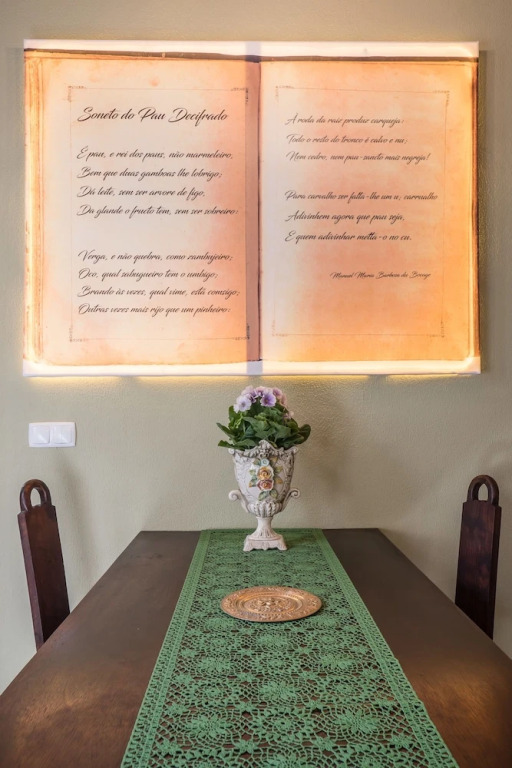 Soneto do Pau Decifrado
É pau, e rei dos paus, não marmeleiro,
Bem que duas gamboas lhe lobrigo;
Dá leite, sem ser arvore de figo,
Da glande o fructo tem, sem ser sobreiro:
Verga, e não quebra, como zambujeiro;
Oco, qual sabugueiro tem o umbigo;
Brando às vezes, qual vime, está consigo;
Outras vezes mais rijo que um pinheiro:
À roda da raiz produz carqueja:
Todo o resto do tronco é calvo e nu;
Nem cedro, nem pau-santo mais negreja!
Para carvalho ser falta-lhe um u; carvualho
Adivinhem agora que pau seja,
E quem adivinhar metta-o no cu.
Manuel Maria Barbosa du Bocage